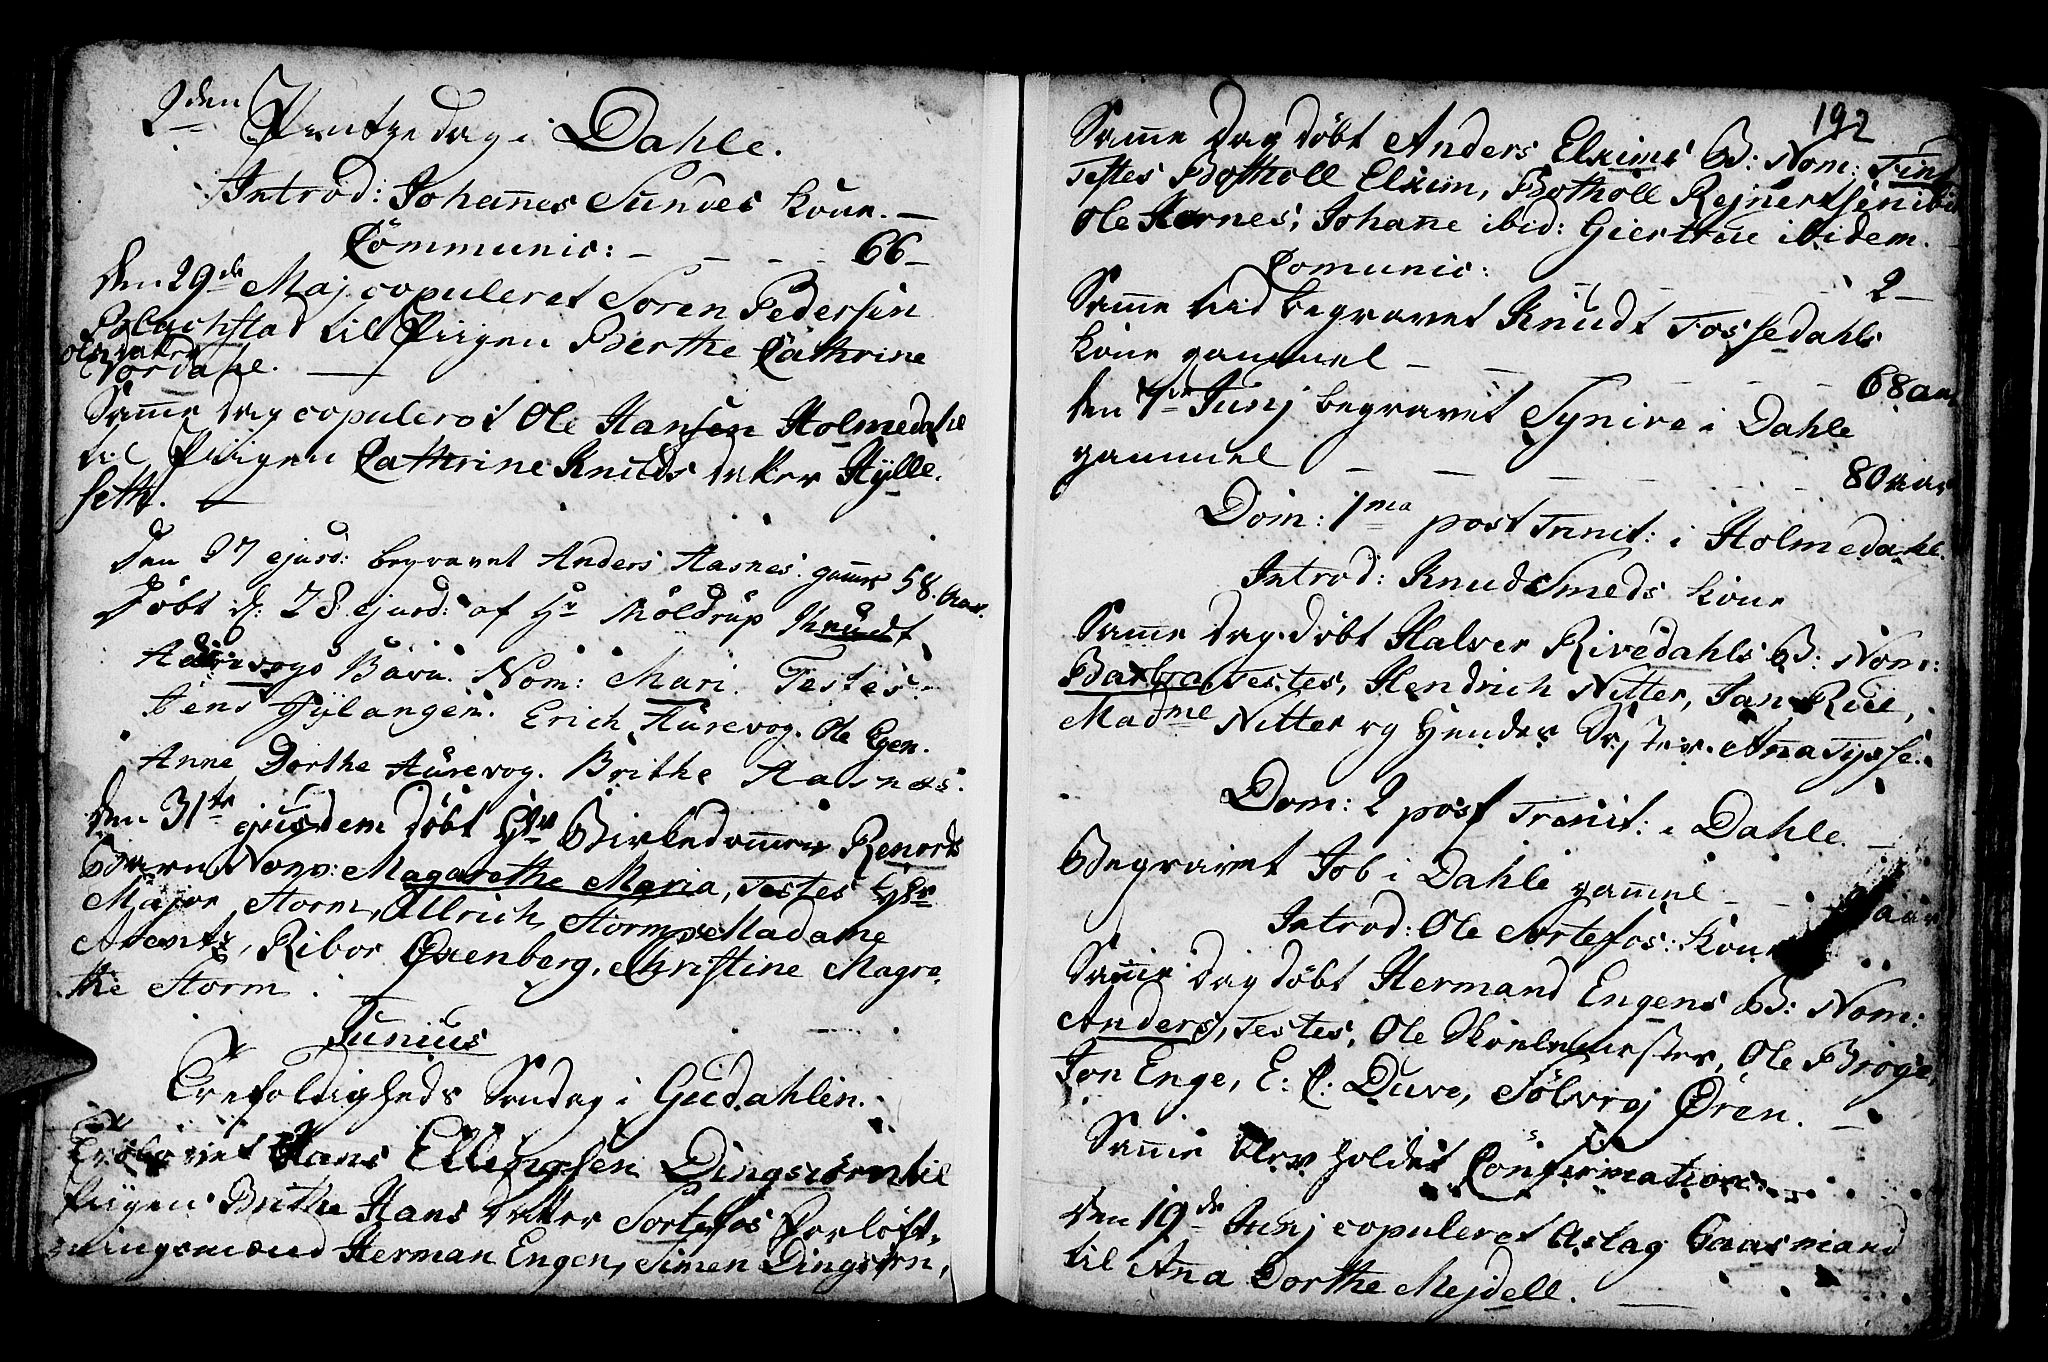 2den Pintzedag i Dahle.
Introd: Johannes Sundes kone. —
Communic: - - - - 66 -
den 29de Maj copuleret Soren Pedersen
Blachstad til Pigen Berthe Cathrine
Nordahl. —
Samme dag copuleret Ole Hansen Holmedahl
til Pigen Cathrine Knuds datter Hylle-
seth. —
Den 27 ejusd: begravet Anders Aasnes. gammel 58. Aar.
Döbt d: 28 ejusd: af Hr Möldrup Knudt
Aürevogs Barn. Nom: Mari. Testes:
Jens Gylangen. Erich Aürevog. Ole Egen.
Anne Dorthe Aürevog. Brithe Aasnæs.
den 31te ejusdem döbt Hr Birkedommer
Barn Nom: Magarethe Maria, Testes Hr
Major Storm, Ullrich Storm, Madame
Arentz, Ribor Oxenberg, Christine Magre-
the Storm.
Junius
Trefoldigheds Sondag i Guddahlen.
Trolovet Hans Ellingsen Dingsören til
Pigen Brithe Hans datter Sortefos Forlöft-
ningsmænd Herman Engen, Simen Dingsörn,
192
Samme dag döbt Anders Elxims B: Nom:
Testes Botholl Elxim, Botholl Rejnertsen ibid
Ole Hornes, Johane ibid: Giertrue ibidem.
Comunic: - - - 2 —
Samme tid begravet Knudt Fossedahls
kone gammel - - - - 68 aar
den 7de Junj begravet Synive i Dahle
gammel - - - - 80 aar
Dom: 1ma post Trinit: i Holmedahl.
Introd: Knud Smeds kone
Samme dag döbt Halver Rivedahls B: Nom:
Barbra Testes, Hendrich Nitter, Jan Riie,
Madme Nitter og hendes Söster Ana Tysse.
Dom: 2 post Trinit: i Dahle. —
Begravet Job i Dahle gammel - - aar
Introd: Ole Sortefos: kone
Samme dag döbt Hermand Engens B: Nom:
Anders, Testes, Ole Skolemester, Ole Bröge,
Jon Enge, E: C: Duve, Sölvrej Ören. —
Samme blev holdet Confirmation
den 19de Junj copuleret Aslag Gaasmand
til Ana Dorthe Mejdell. —